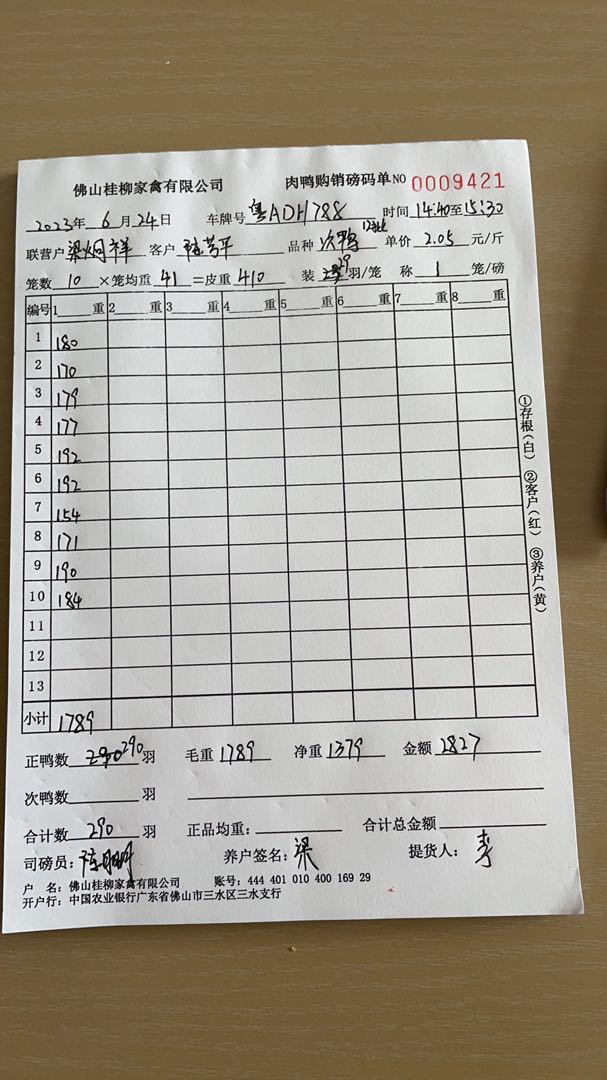 佛山桂柳家禽有限公司 肉鸭购销磅码单 NO 0009421
2023年 6月 24日 车牌号 粤ADH788 时间 14:40至15:30
联营户 梁炯祥 客户 陈芳平 品种 次鸭 单价 2.05 元/斤
笼数 10 ×笼均重 41 =皮重 410 装 29 羽/笼 称 1 笼/磅
编号 1 重 2 重 3 重 4 重 5 重 6 重 7 重 8 重
1 180
2 170
3 179
4 177
5 192
6 192
7 154
8 171
9 190
10 184
11
12
13
小计 1789
①存根(白) ②客户(红) ③养户(黄)
正鸭数 290 羽 毛重 1789 净重 1379 金额 2827
次鸭数 羽
合计数 290 羽 正品均重: 合计总金额
司磅员: 养户签名: 梁 提货人: 李
户 名: 佛山桂柳家禽有限公司 账号: 444 401 010 400 169 29
开户行: 中国农业银行广东省佛山市三水区三水支行